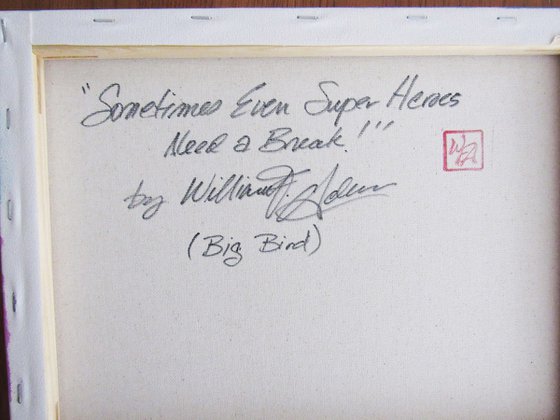 "Sometimes Even Super Heroes
Need a Break!"
by William F.
(Big Bird)